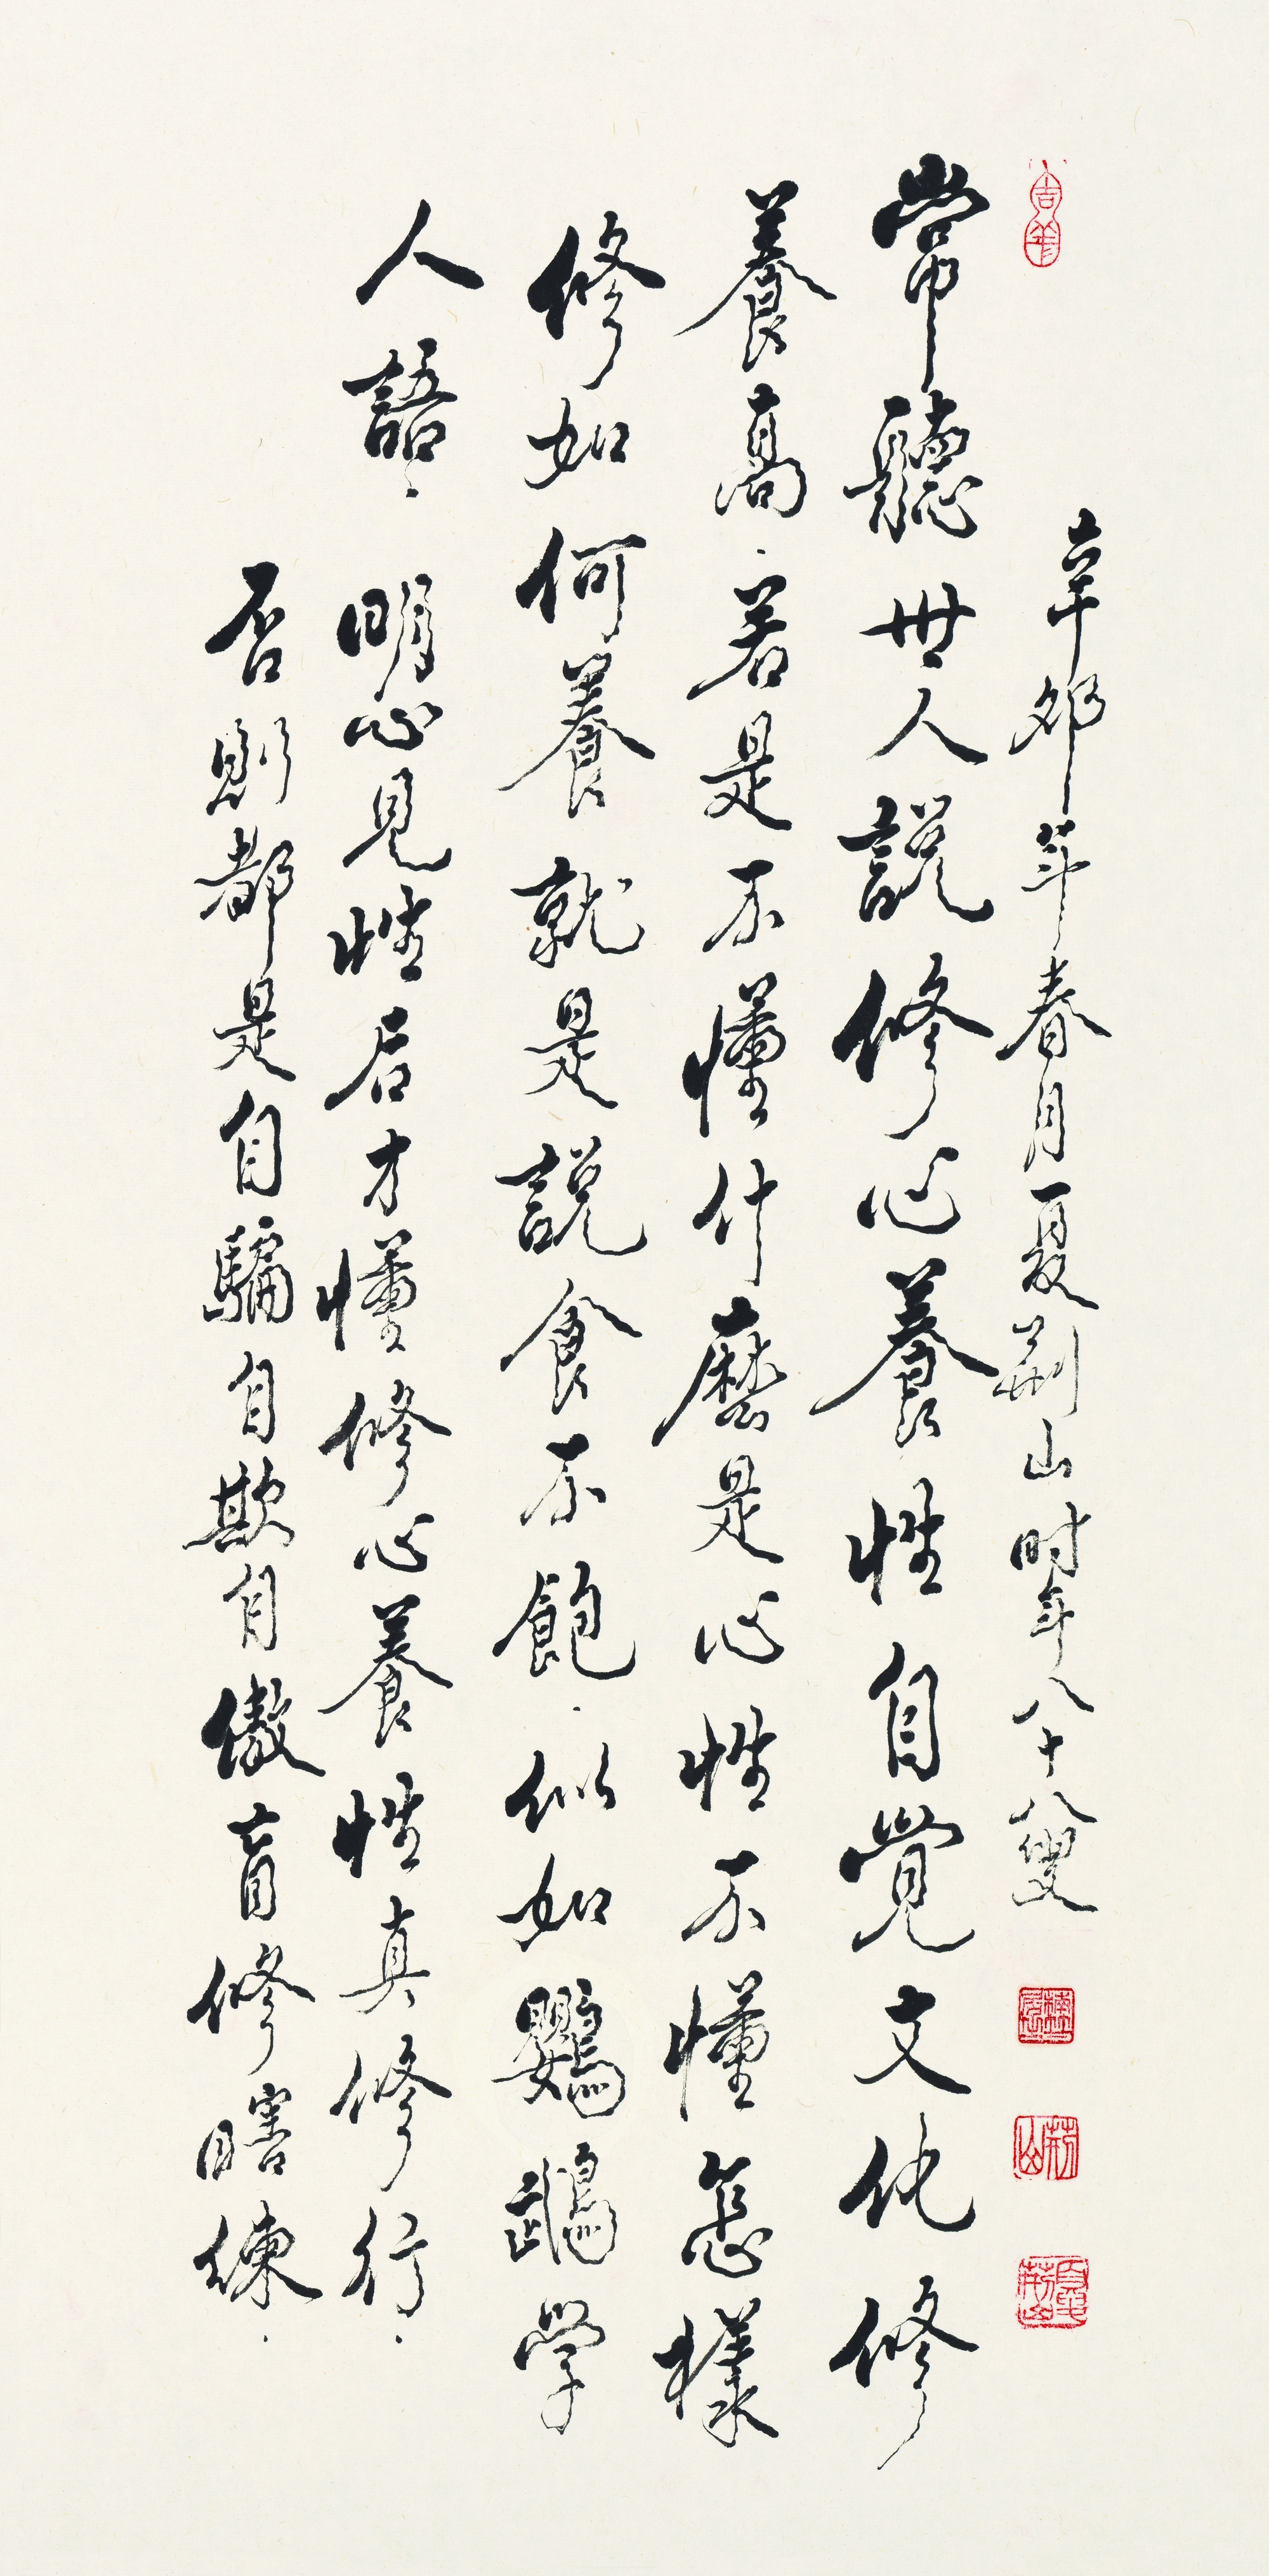 辛卯年春月夏荊山时年八十八叟
常聽世人說修心養性自覺文化修
養高.若是不懂什麽是心性不懂怎樣
修如何養就是說食不飽.似如鸚鵡学
人語.明心見性后才懂修心養性真修行.
否則都是自騙自欺自傲盲修瞎練.
荊山
夏荊山